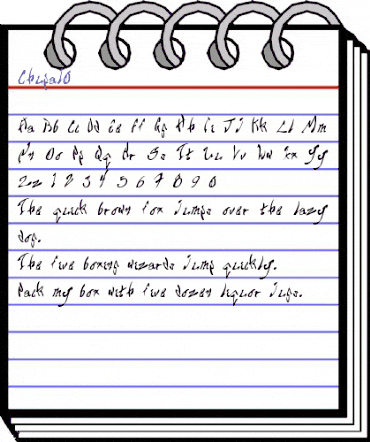 Aa Bb Cc Dd Ee Ff Gg Hh Ii Jj Kk Ll Mm
Nn Oo Pp Qq Rr Ss Tt Uu Vv Ww Xx Yy
Zz 1 2 3 4 5 6 7 8 9 0
The quick brown fox jumps over the lazy
dog.
The five boxing wizards jump quickly.
Pack my box with five dozen liquor jugs.